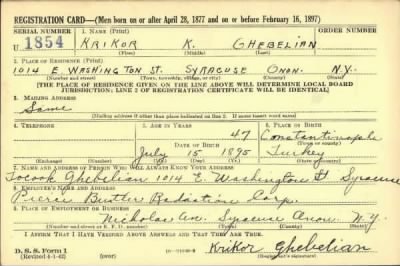 REGISTRATION CARD—(Men born on or after April 28, 1877 and on or before February 16, 1897)
SERIAL NUMBER 1. NAME (Print) ORDER NUMBER
U 1854 KRIKOR K. GHEBELIAN
(First) (Middle) (Last)
2. PLACE OF RESIDENCE (Print)
1014 E WASHINGTON ST. SYRACUSE ONON. N.Y.
(Number and street) (Town, township, village, or city) (County) (State)
[THE PLACE OF RESIDENCE GIVEN ON THE LINE ABOVE WILL DETERMINE LOCAL BOARD
JURISDICTION; LINE 2 OF REGISTRATION CERTIFICATE WILL BE IDENTICAL]
3. MAILING ADDRESS
Same
[Mailing address if other than place indicated on line 2. If same insert word same]
4. TELEPHONE 5. AGE IN YEARS 6. PLACE OF BIRTH
47 Constantinople
DATE OF BIRTH
July 15 1895 Turkey
(Exchange) (Number) (Mo.) (Day) (Yr.) (State or country)
7. NAME AND ADDRESS OF PERSON WHO WILL ALWAYS KNOW YOUR ADDRESS
Ghebelian 1014 E. Washington St Syracuse
8. EMPLOYER'S NAME AND ADDRESS
Pierce Butler Radiator Corp.
9. PLACE OF EMPLOYMENT OR BUSINESS
Nicholas Ave. Syracuse Onon. N.Y.
(Number and street or R. F. D. number) (Town) (County) (State)
I AFFIRM THAT I HAVE VERIFIED ABOVE ANSWERS AND THAT THEY ARE TRUE.
D. S. S. Form 1
(Revised 4-1-42) (over)
Krikor Ghebelian